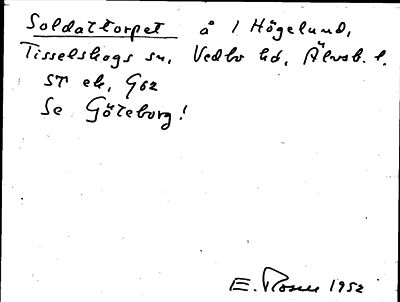 Soldattorpet å 1 Högelund,
Tisselskogs sn, Vedbo hd, Älvsb. l.
ST ek, G62
Se Göteborg!
E. Rosen 1952